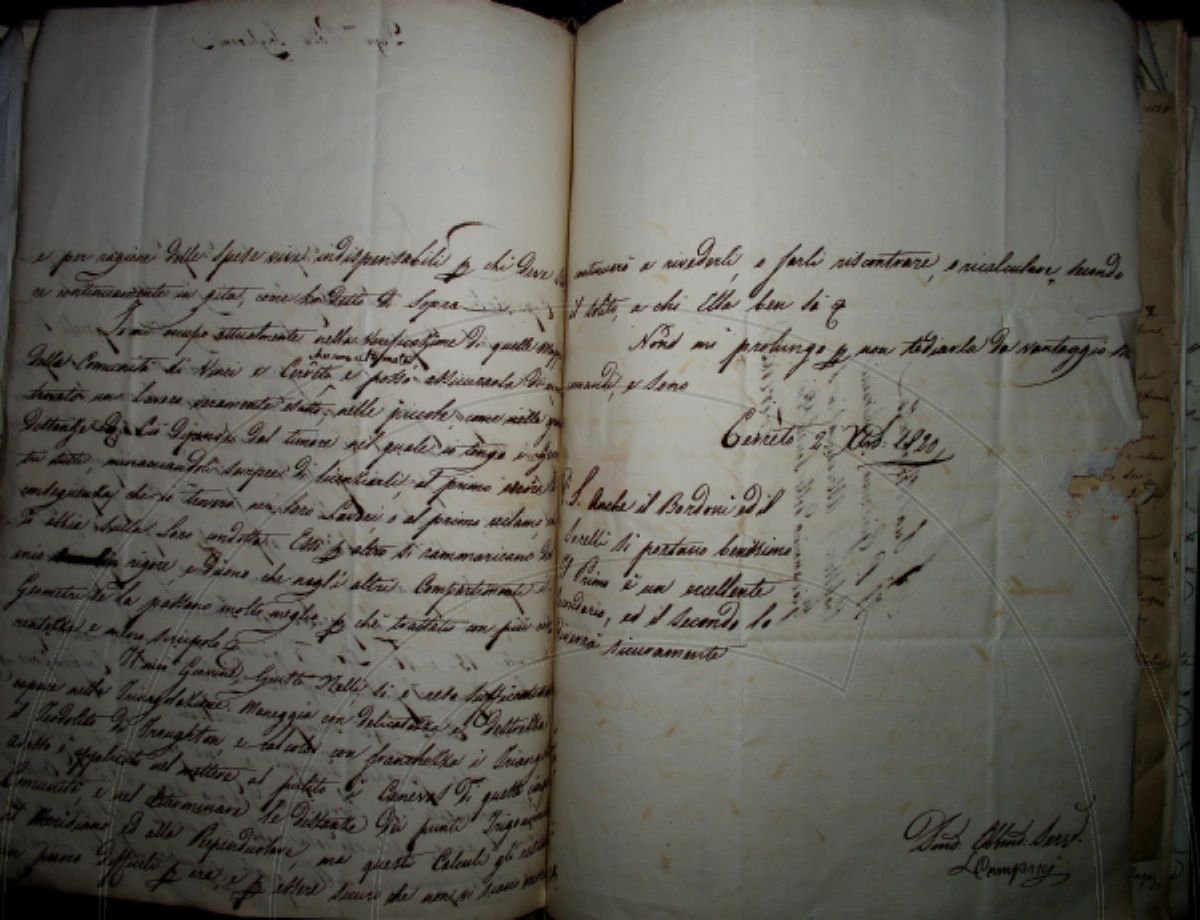 e per ragione delle spese vive indispensabili p chi deve
re continuamente in gita, come ho detto di sopra
Io mi occupo attualmente nella verificazione di quelle Mapp
della Comunità di Vinci e Cerreto e posso assicurarla di
trovato un lavoro veramente esatto, nelle piccole, come nelle
distanze Ciò dipende dal timore nel quale io tengo
tri tutti, minacciandoli sempre di licenziarli, al primo errore
conseguenza che si trovi nei loro lavori o al primo reclamo
si abbia sulla loro condotta. Essi p altro si rammaricano del
mio rigore, e dicono che negli altri Compartimenti i
Geometri se la passano molto meglio p che trattati con più
e meno scrupolo
Il mio Giovine Giusto Nelli si è reso sufficientemente
capace nella Triangolazione. Maneggia con delicatezza e destrezza
il Teodolito di Troughton e calcola con franchezza i Triangoli
Adesso è applicato nel mettere al pulito i Canevas di queste
Comunità, e nel determinare le distanze dei punti Trigonom
al Meridiano ed alla Perpendicolare, ma questi Calcoli gli
un poco difficili p ora, e p essere sicuro che non vi siano
continuerò a rivederli, e farli riscontrare, o ricalculare, secondo
il solito, a chi Ella ben sà
Non mi prolungo p non tediarla da vantaggio
mandi, e sono
Cerreto 2 Xbre 1820
P. S. Anche il Bordoni ed il
si portano benissimo
Il Primo è un eccellente
secondario, ed il secondo lo
diverrà sicuramente
Dmo Obbmo Serv.
LCampani